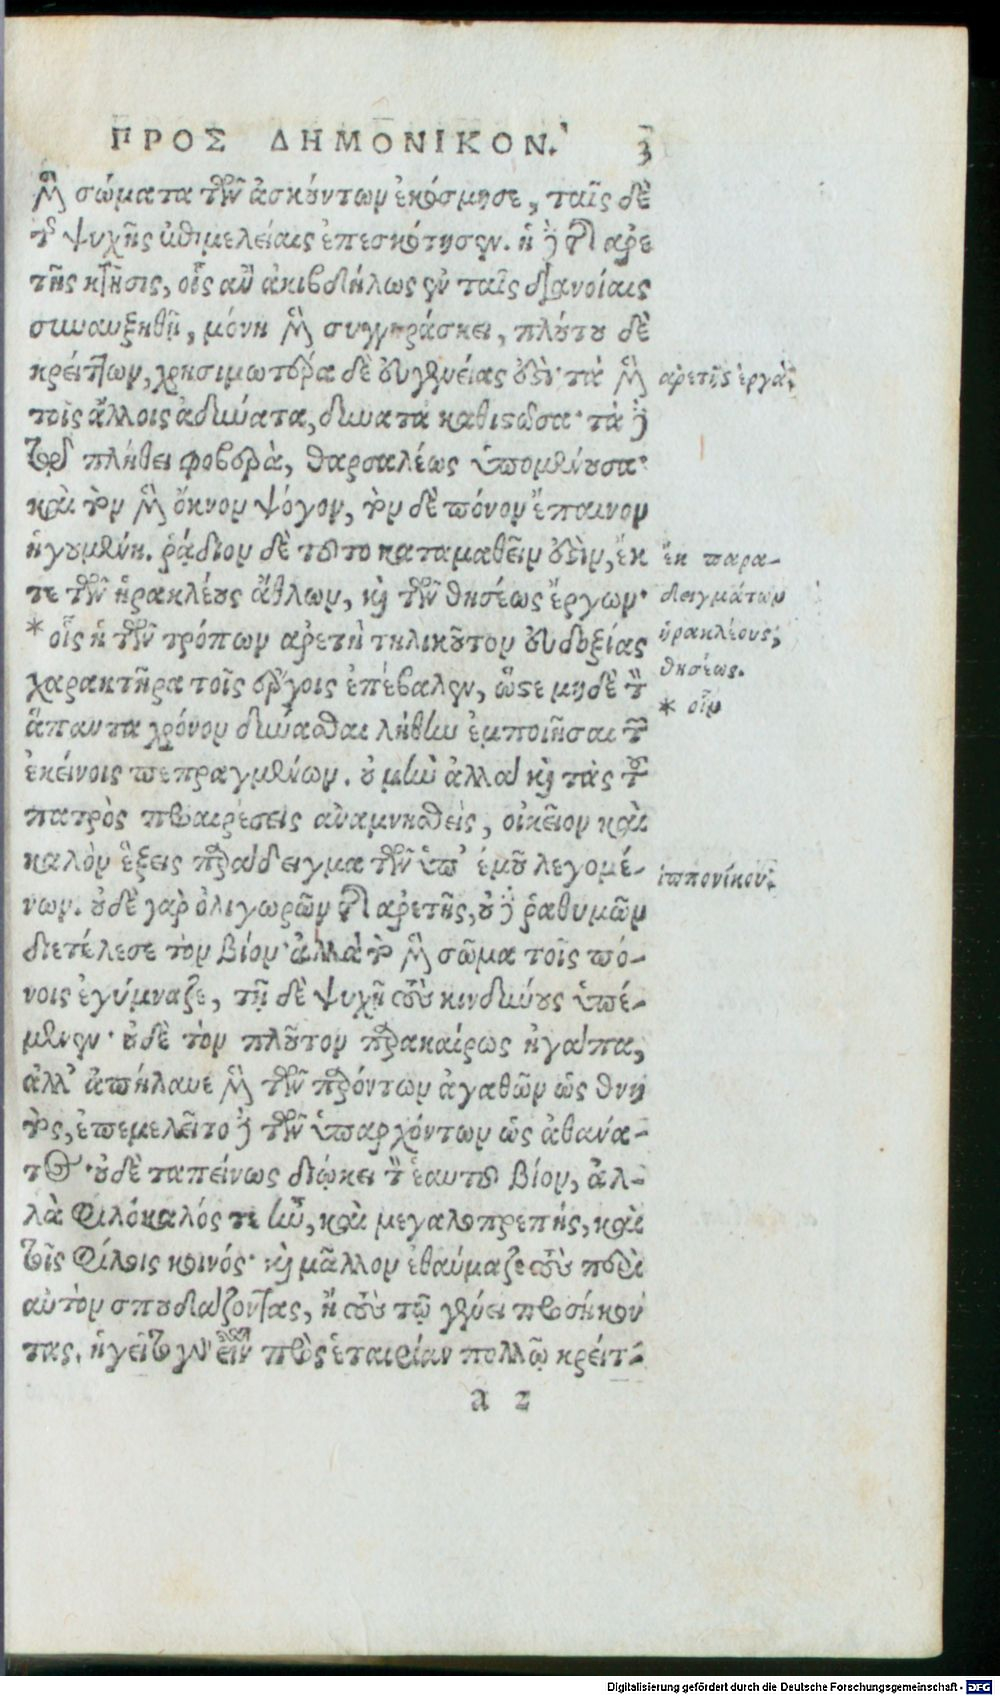 ΠΡΟΣ ΔΗΜΟΝΙΚΟΝ. 3
μὲν σώματα τῶν ἀσκούντων ἐκόσμησε, ταῖς δὲ
τῆς ψυχῆς ἐπιμελείαις ἐπεσκότησεν. ἡ δὲ τῆς ἀρε
τῆς κτῆσις, οἷς ἂν ἀκιβδήλως ἐν ταῖς διανοίαις
συναυξηθῇ, μόνη μὲν συγγηράσκει, πλούτου δὲ
κρείττων, χρησιμωτέρα δὲ εὐγενείας ἐστὶ· τὰ μὲν
τοῖς ἄλλοις ἀδύνατα, δυνατὰ καθιστῶσα· τὰ δὲ
τῷ πλήθει φοβερὰ, θαρσαλέως ὑπομένουσα·
καὶ τὸν μὲν ὄκνον ψόγον, τὸν δὲ πόνον ἔπαινον
ἡγουμένη. ῥᾴδιον δὲ τοῦτο καταμαθεῖν ἐστὶν, ἔκ
τε τῶν ἡρακλέους ἄθλων, καὶ τῶν θησέως ἔργων·
* οἷς ἡ τῶν τρόπων ἀρετὴ τηλικοῦτον εὐδοξίας
χαρακτῆρα τοῖς ἔργοις ἐπέβαλεν, ὥστε μηδὲ τὸν
ἅπαντα χρόνον δύνασθαι λήθην ἐμποιῆσαι τῶν
ἐκείνοις πεπραγμένων. οὐ μὴν ἀλλὰ καὶ τὰς τοῦ
πατρὸς προαιρέσεις ἀναμνησθεὶς, οἰκεῖον καὶ
καλὸν ἕξεις παράδειγμα τῶν ὑπ' ἐμοῦ λεγομέ-
νων. οὐδὲ γὰρ ὀλιγωρῶν τῆς ἀρετῆς, οὐδὲ ῥαθυμῶν
διετέλεσε τὸν βίον· ἀλλὰ τὸ μὲν σῶμα τοῖς πό-
νοις ἐγύμναζε, τῇ δὲ ψυχῇ τοὺς κινδύνους ὑπέ-
μενεν· οὐδὲ τὸν πλοῦτον παρακαίρως ἠγάπα,
ἀλλ' ἀπήλαυε μὲν τῶν παρόντων ἀγαθῶν ὡς θνη
τὸς, ἐπεμελεῖτο δὲ τῶν ὑπαρχόντων ὡς ἀθάνα-
τος· οὐδὲ ταπείνως διῴκει τὸν ἑαυτοῦ βίον, ἀλ-
λὰ φιλόκαλός τε ἦν, καὶ μεγαλοπρεπὴς, καὶ
τοῖς φίλοις κοινός· καὶ μᾶλλον ἐθαύμαζε τοὺς περὶ
αὑτὸν σπουδάζοντας, ἢ τοὺς τῷ γένει προσήκον
τας. ἡγεῖτο γὰρ εἶναι πρὸς ἑταιρίαν πολλῷ κρείτ-
a 2
ἀρετῆς ἔργα.
ἐκ παρα-
δειγμάτων
ἡρακλέους,
θησέως.
* οἷν
ἱππονίκου.
Digitalisierung gefördert durch die Deutsche Forschungsgemeinschaft - DFG